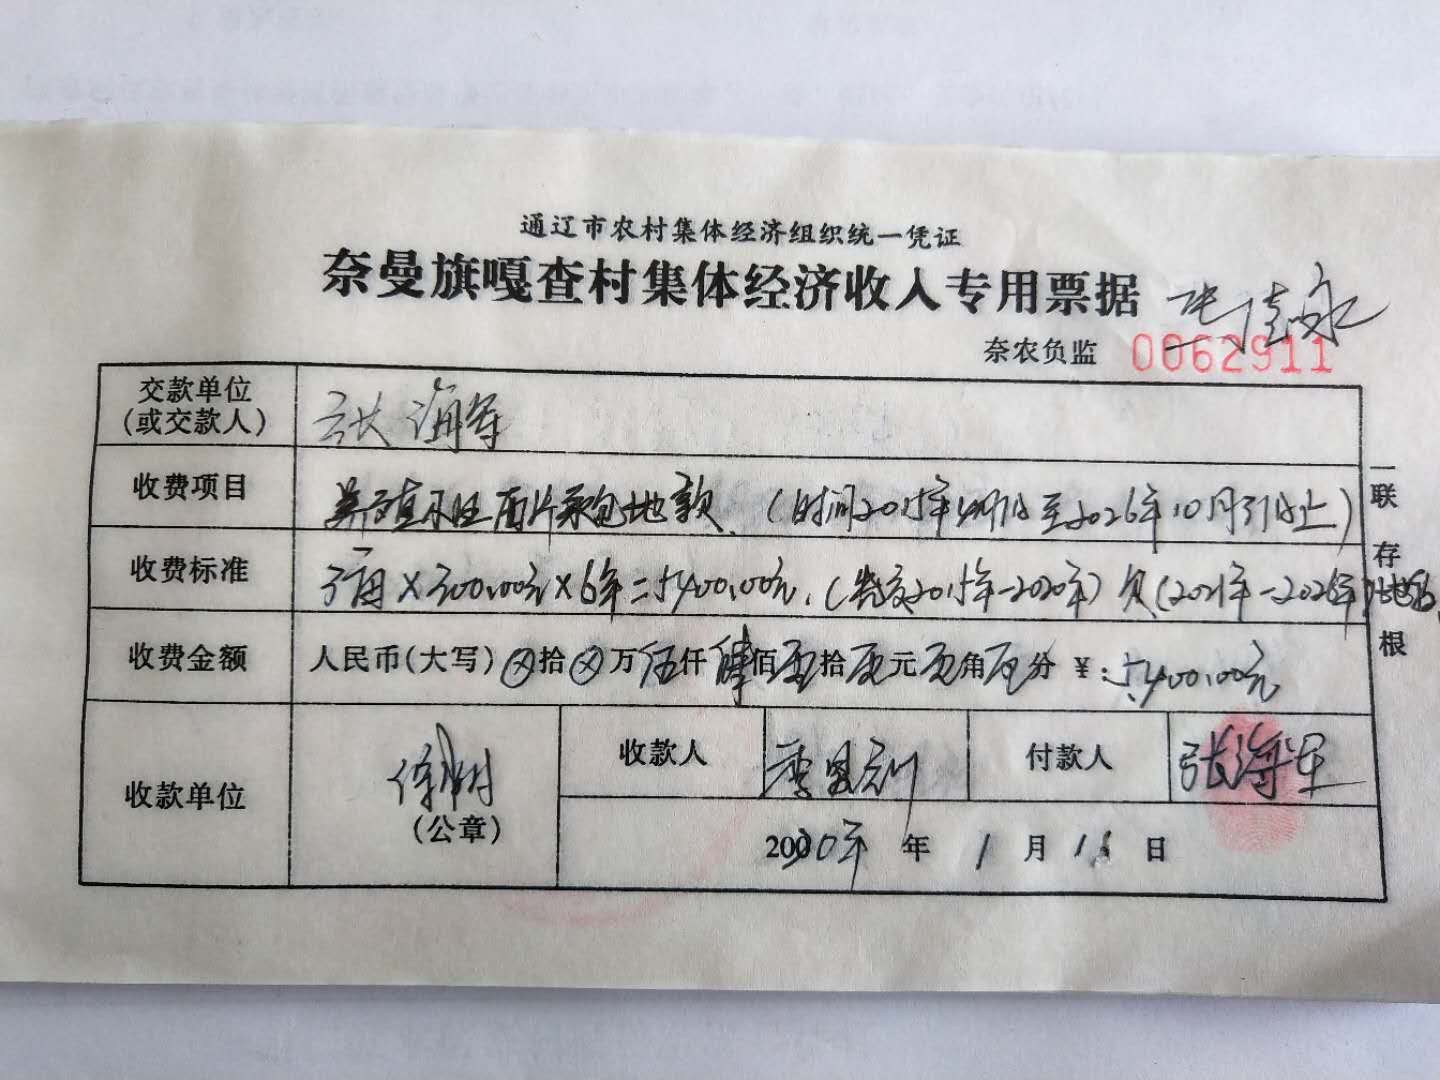 通辽市农村集体经济组织统一凭证
奈曼旗嘎查村集体经济收入专用票据
奈农负监 0062911
交款单位
(或交款人) 张海军
收费项目 西片承包地款 (时间2015年 至2026年10月31日止)
收费标准 3亩×300.00元×6年=5400.00元, 2015年-2020年) 欠(2021年-2026年
收费金额 人民币(大写)⊗拾⊗万伍仟肆佰零拾零元零角零分 ¥:5400.00元
收款单位 (公章) 收款人 付款人 张海军
2020年 年 1 月 日
一联存根